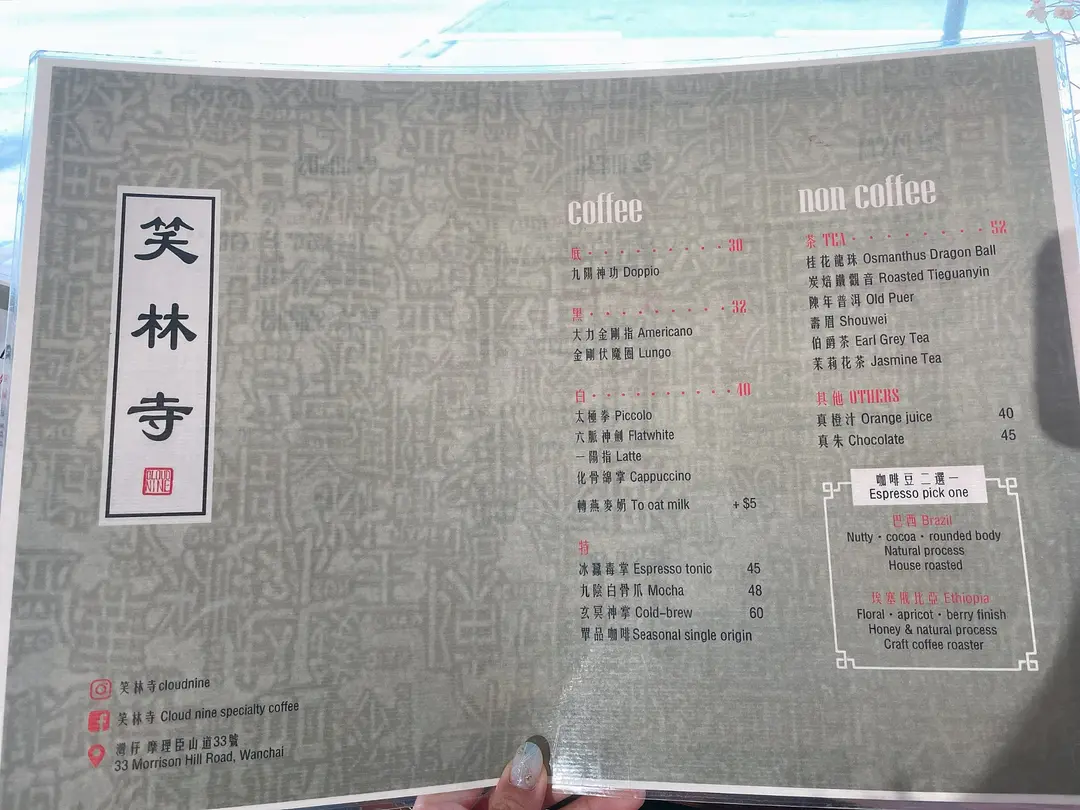 笑林寺
CLOUD
NINE
笑林寺cloudnine
笑林寺 Cloud nine specialty coffee
灣仔 摩理臣山道33號
33 Morrison Hill Road, Wanchai
coffee
底 · · · · · · · · · · 30
九陽神功 Doppio
黑 · · · · · · · · · · 32
大力金剛指 Americano
金剛伏魔圈 Lungo
白 · · · · · · · · · · 40
太極拳 Piccolo
六脈神劍 Flatwhite
一陽指 Latte
化骨綿掌 Cappuccino
轉燕麥奶 To oat milk + $5
特
冰蠶毒掌 Espresso tonic 45
九陰白骨爪 Mocha 48
玄冥神掌 Cold-brew 60
單品咖啡Seasonal single origin
non coffee
茶 TEA · · · · · · · · 52
桂花龍珠 Osmanthus Dragon Ball
炭焙鐵觀音 Roasted Tieguanyin
陳年普洱 Old Puer
壽眉 Shouwei
伯爵茶 Earl Grey Tea
茉莉花茶 Jasmine Tea
其他 OTHERS
真橙汁 Orange juice 40
真朱 Chocolate 45
咖啡豆二選一
Espresso pick one
巴西 Brazil
Nutty · cocoa · rounded body
Natural process
House roasted
埃塞俄比亞 Ethiopia
Floral · apricot · berry finish
Honey & natural process
Craft coffee roaster